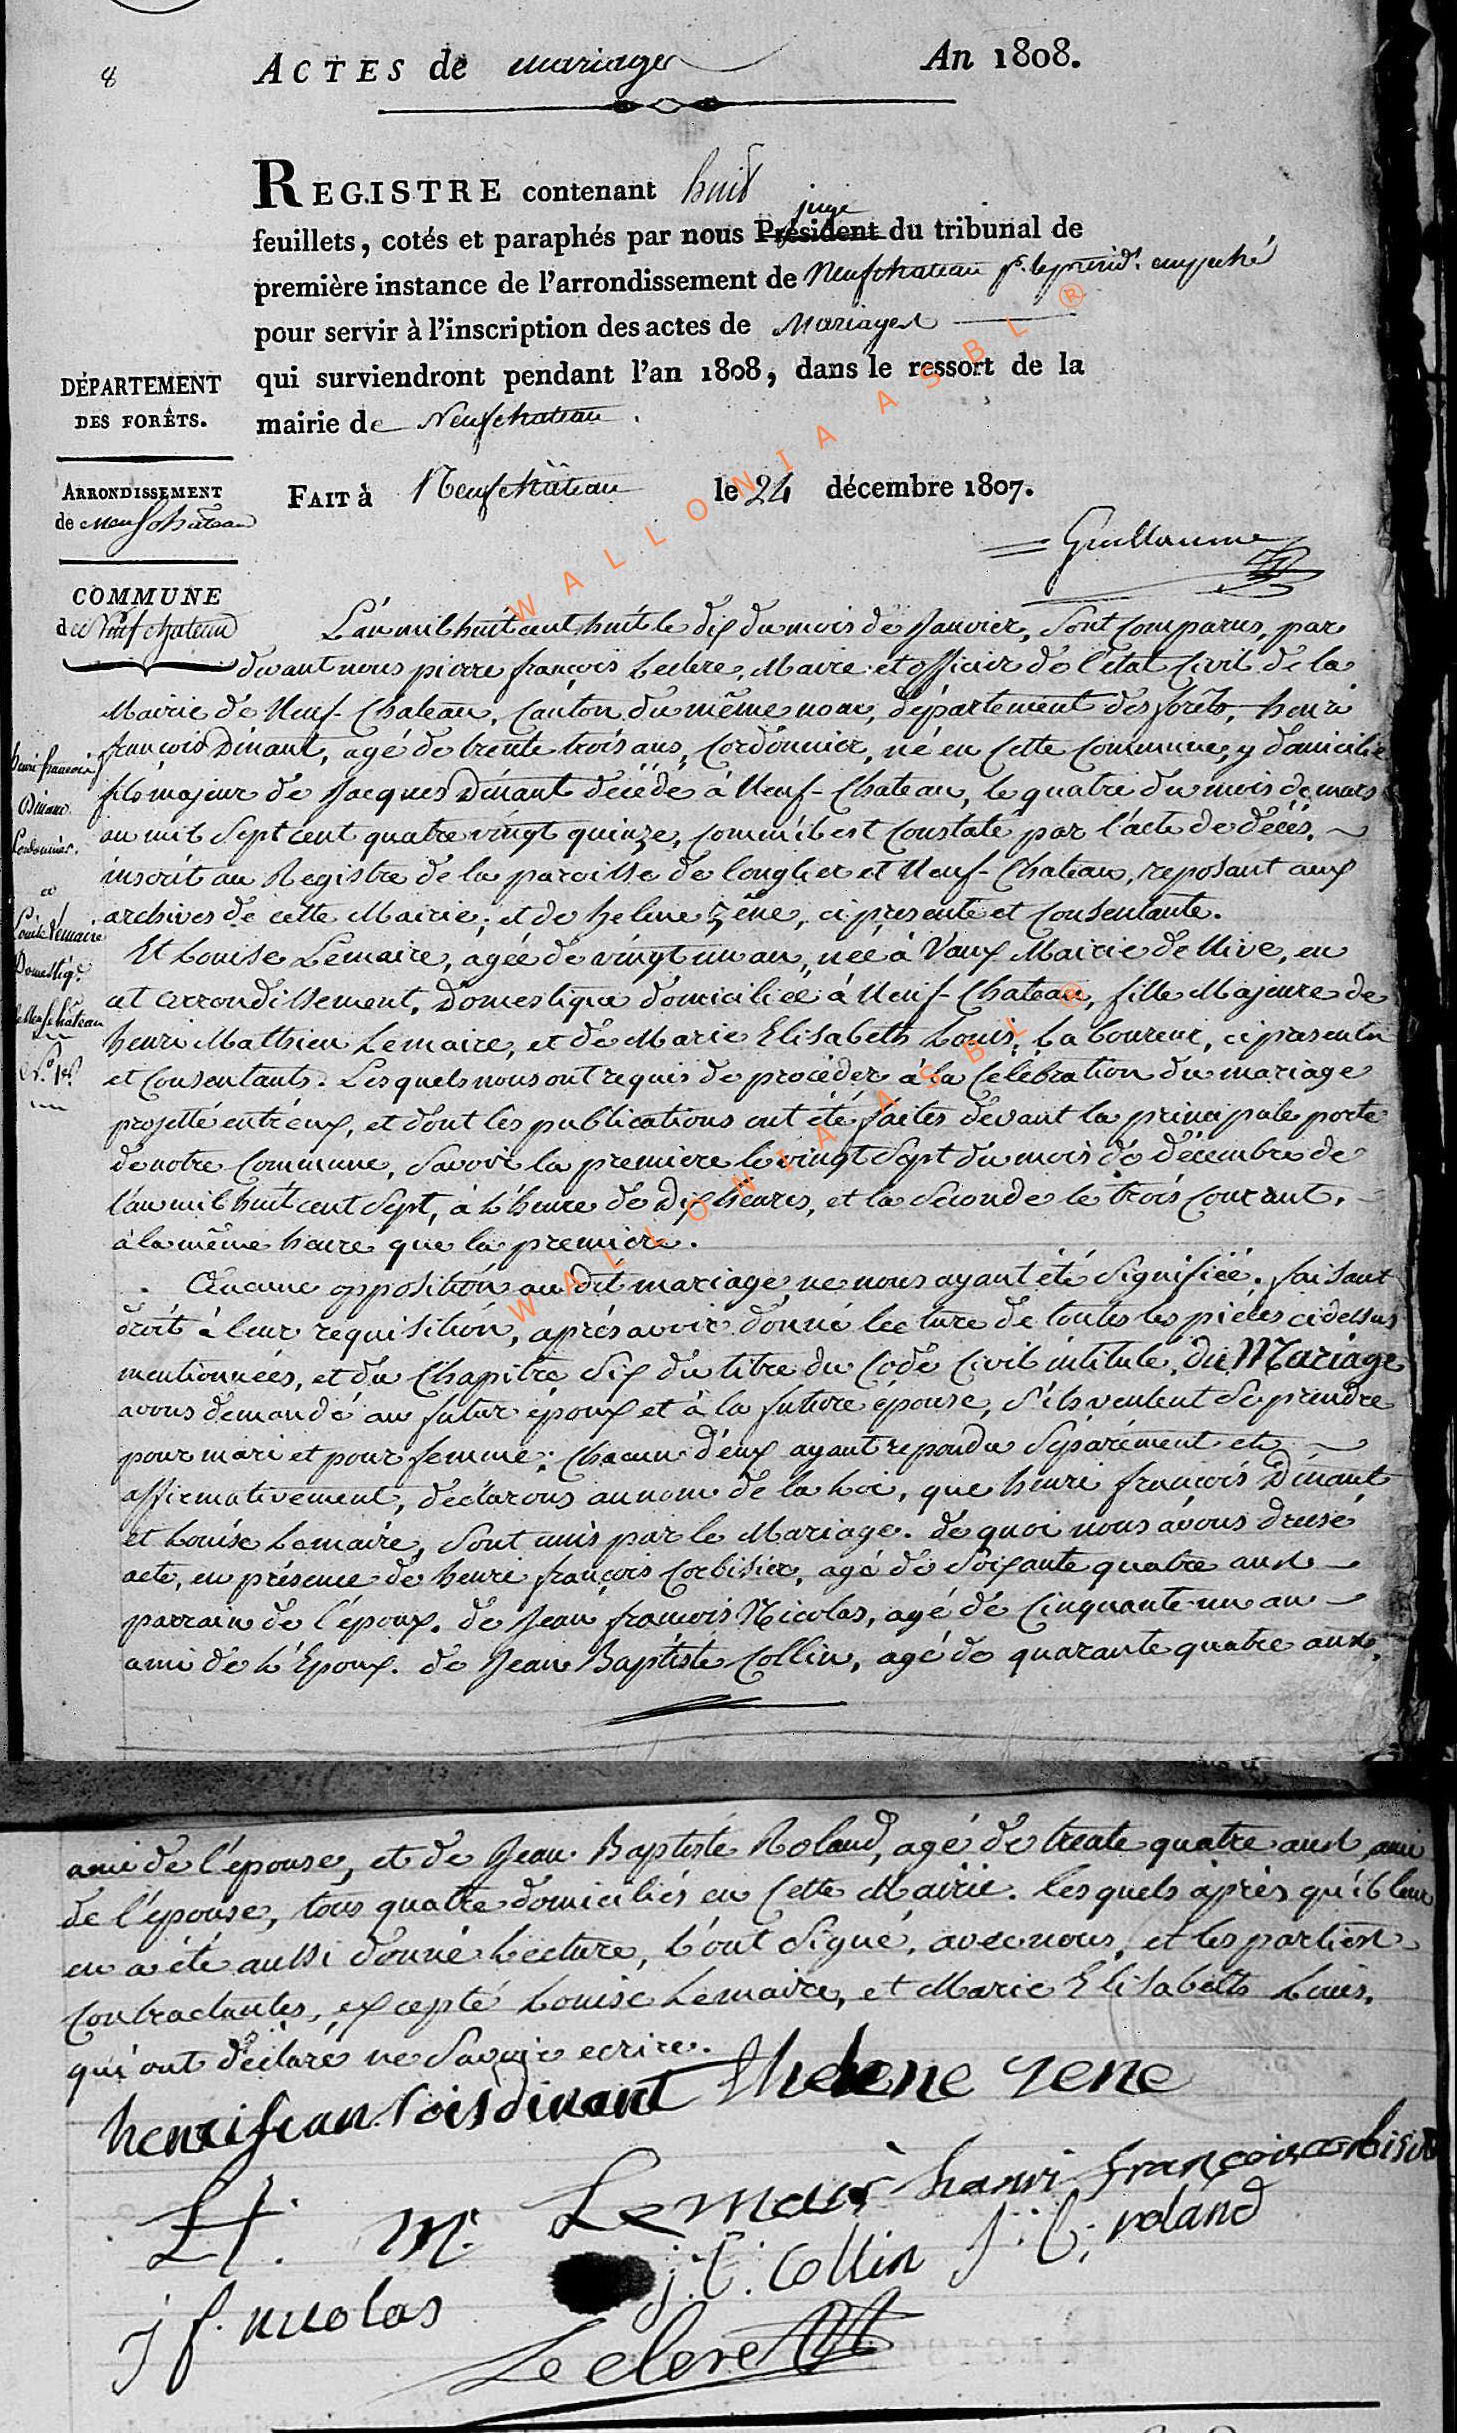 8
ACTES de mariages An 1808.
REGISTRE contenant huit
feuillets, cotés et paraphés par nous Président juge du tribunal de
première instance de l'arrondissement de Neufchateau pr. le présidt. empeché
pour servir à l'inscription des actes de Mariages
qui surviendront pendant l'an 1808, dans le ressort de la
mairie de Neufchateau.
FAIT à Neufchâteau le 24 décembre 1807.
Guillaume
DÉPARTEMENT
DES FORÊTS.
ARRONDISSEMENT
de Neufchâteau
COMMUNE
de Neufchateau
henri francois
Dinant
Cordonnier.
et
Louise Lemaire
Domestiq.
de Neufchâteau
N.º 1er
L'an mil huit cent huit le dix du mois de Janvier, sont comparus, par
devant nous pierre françois Leclere, Maire et officier de l'état Civil de la
Mairie de Neuf-Chateau, Canton du même nom, département des forêts, henri
françois Dinant, agé de trente trois ans, Cordonnier, né en cette Commune, y domicilié
fils majeur de Jacques Dinant décédé à Neuf-Chateau, le quatre du mois de mars
an mil sept cent quatre vingt quinze, comm'il est constaté par l'acte de décès,
inscrit au Registre de la paroisse de longlier et Neuf-Chateau, reposant aux
archives de cette Mairie; et de helene zêne, ci presente et consentante.
Et Louise Lemaire, agée de vingt un an, née à Vaux Mairie de Nive, en
cet arrondissement, Domestique domiciliée à Neuf-Chateau, fille Majeure de
henri Mathieu Lemaire, et de Marie Elisabeth Louis, Laboureur, ci presents
et Consentants. Lesquels nous ont requis de procéder à la Celébration du mariage
projetté entr'eux, et dont les publications ont été faites devant la principale porte
de notre Commune, savoir la premiere le vingt sept du mois de décembre de
l'an mil huit cent sept, à l'heure de dix heures, et la seconde le trois courant,
à la même heure que la premiere.
Aucune opposition au dit mariage ne nous ayant été signifiée, faisant
droit à leur requisition, après avoir donné lecture de toutes les pièces ci dessus
mentionnées, et du Chapitre six du titre du Code Civil intitulé, du Mariage
avons demandé au futur époux et à la future épouse, s'ils veulent se prendre
pour mari et pour femme: chacun d'eux ayant repondu séparément et
affirmativement, déclarons au nom de la Loi, que henri françois Dinant
et Louise Lemaire, sont unis par le Mariage. de quoi nous avons dressé
acte, en présence de henri françois Corbisier, agé de soixante quatre ans
parrain de l'époux. de Jean françois Nicolas, agé de cinquante un an
ami de l'Epoux. de Jean Baptiste Collin, agé de quarante quatre ans,
ami de l'épouse, et de Jean Baptiste Roland, agé de trente quatre ans ami
de l'épouse, tous quatre domiciliés en cette Mairie. lesquels après qu'il leur
en a été aussi donné Lecture, l'ont signé, avec nous, et les parties
contractantes, excepté Louise Lemaire, et Marie Elisabeth Louis,
qui ont déclaré ne savoir ecrire.
henri francois dinant helene zene
H. M. Lemair henri françois corbisier
j. b. Collin j. b. roland
j f. nicolas
Leclere
WALLONIA ASBL ®
WALLONIA ASBL ®